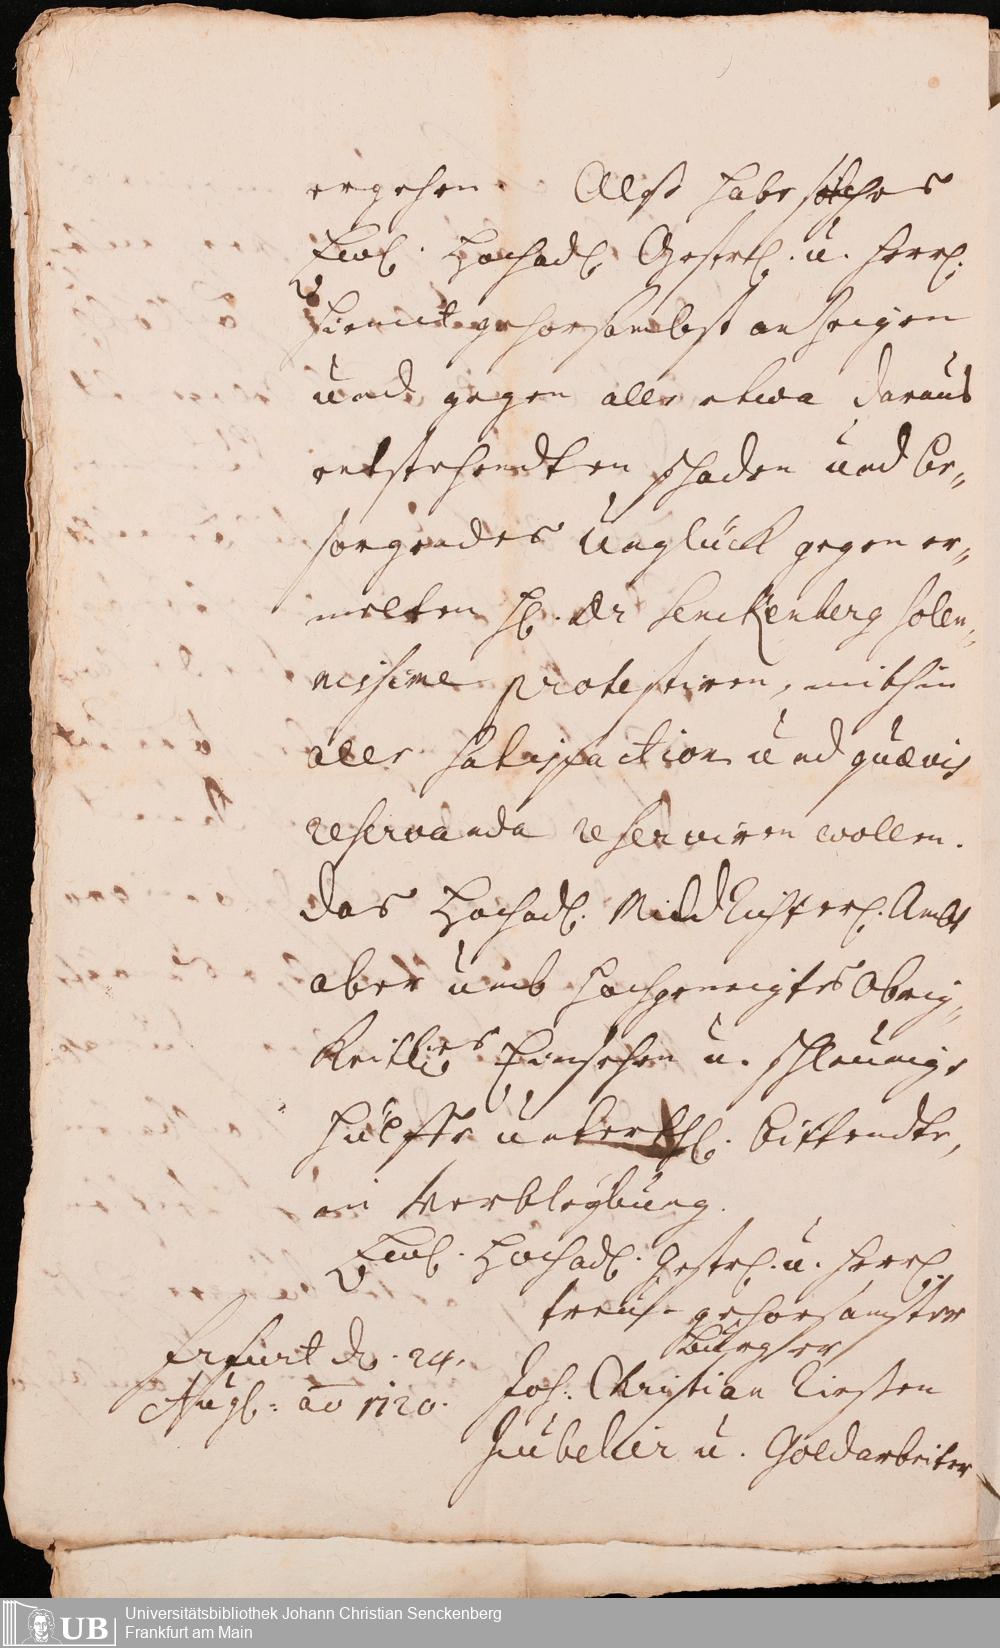 ergehen. Alß habe solches
Ewl. Hochadl. Gestrl. u. Herrl.
hiemit gehorsambst anzeigen
und gegen alle etwa daraus
entstehendten schaden und be„
sorgendes Unglück gegen er„
melten H. Dr Senckenberg solen„
nissime protestiren, mithin
alle satisfaction und quævis
reservanda reserviren wollen.
das Hochadl. Ambt
aber umb hochgeneigtes Obrig„
keitliches Einsehen u. schleunige
hülffe unterthl. bittendte,
in Verbleybung.
Ewl. Hochadl. Gestrl. u. Herrl.
treu- gehorsamster
Burger
Erfurt d. 24.
Aug: ao 1720.
Joh: Christian
Jubelier u. Goldarbeiter
UB Universitätsbibliothek Johann Christian Senckenberg
Frankfurt am Main